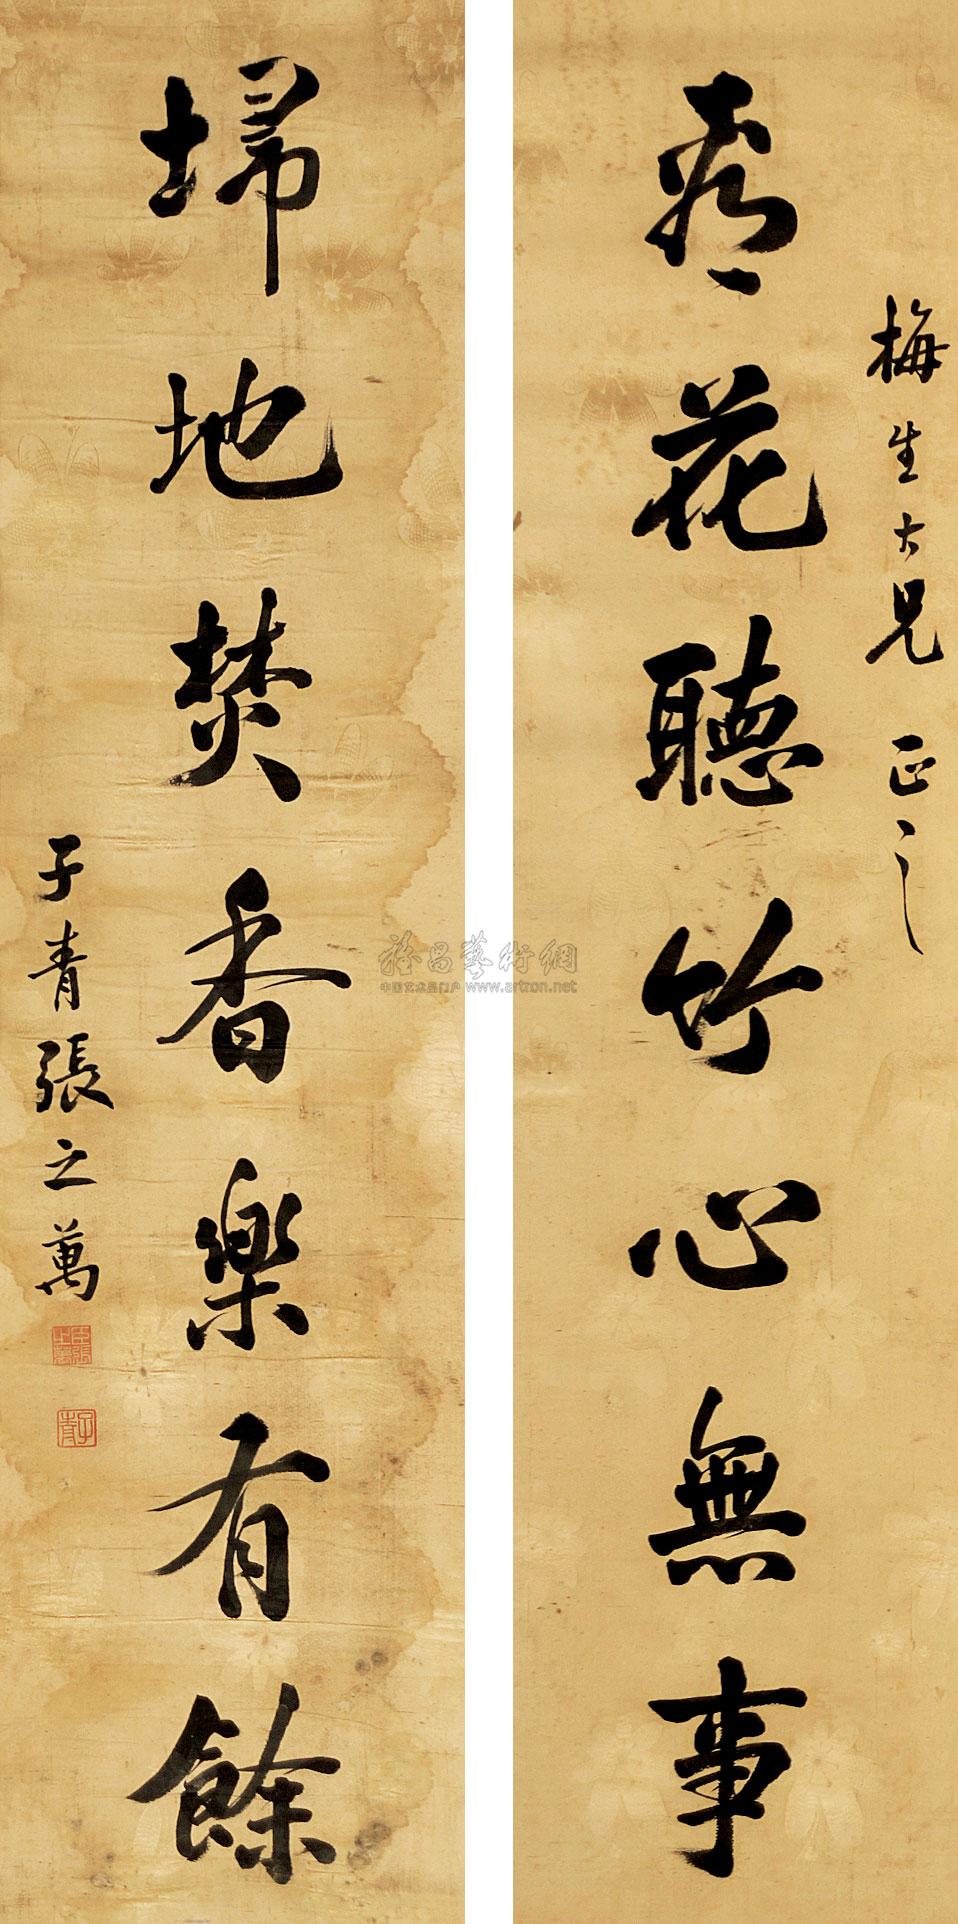 梅生大兄正之
看花聽竹心無事
埽地焚香樂有餘
子青張之萬
臣張之萬
子青
雅昌藝術網
中国艺术品门户 www.artron.net